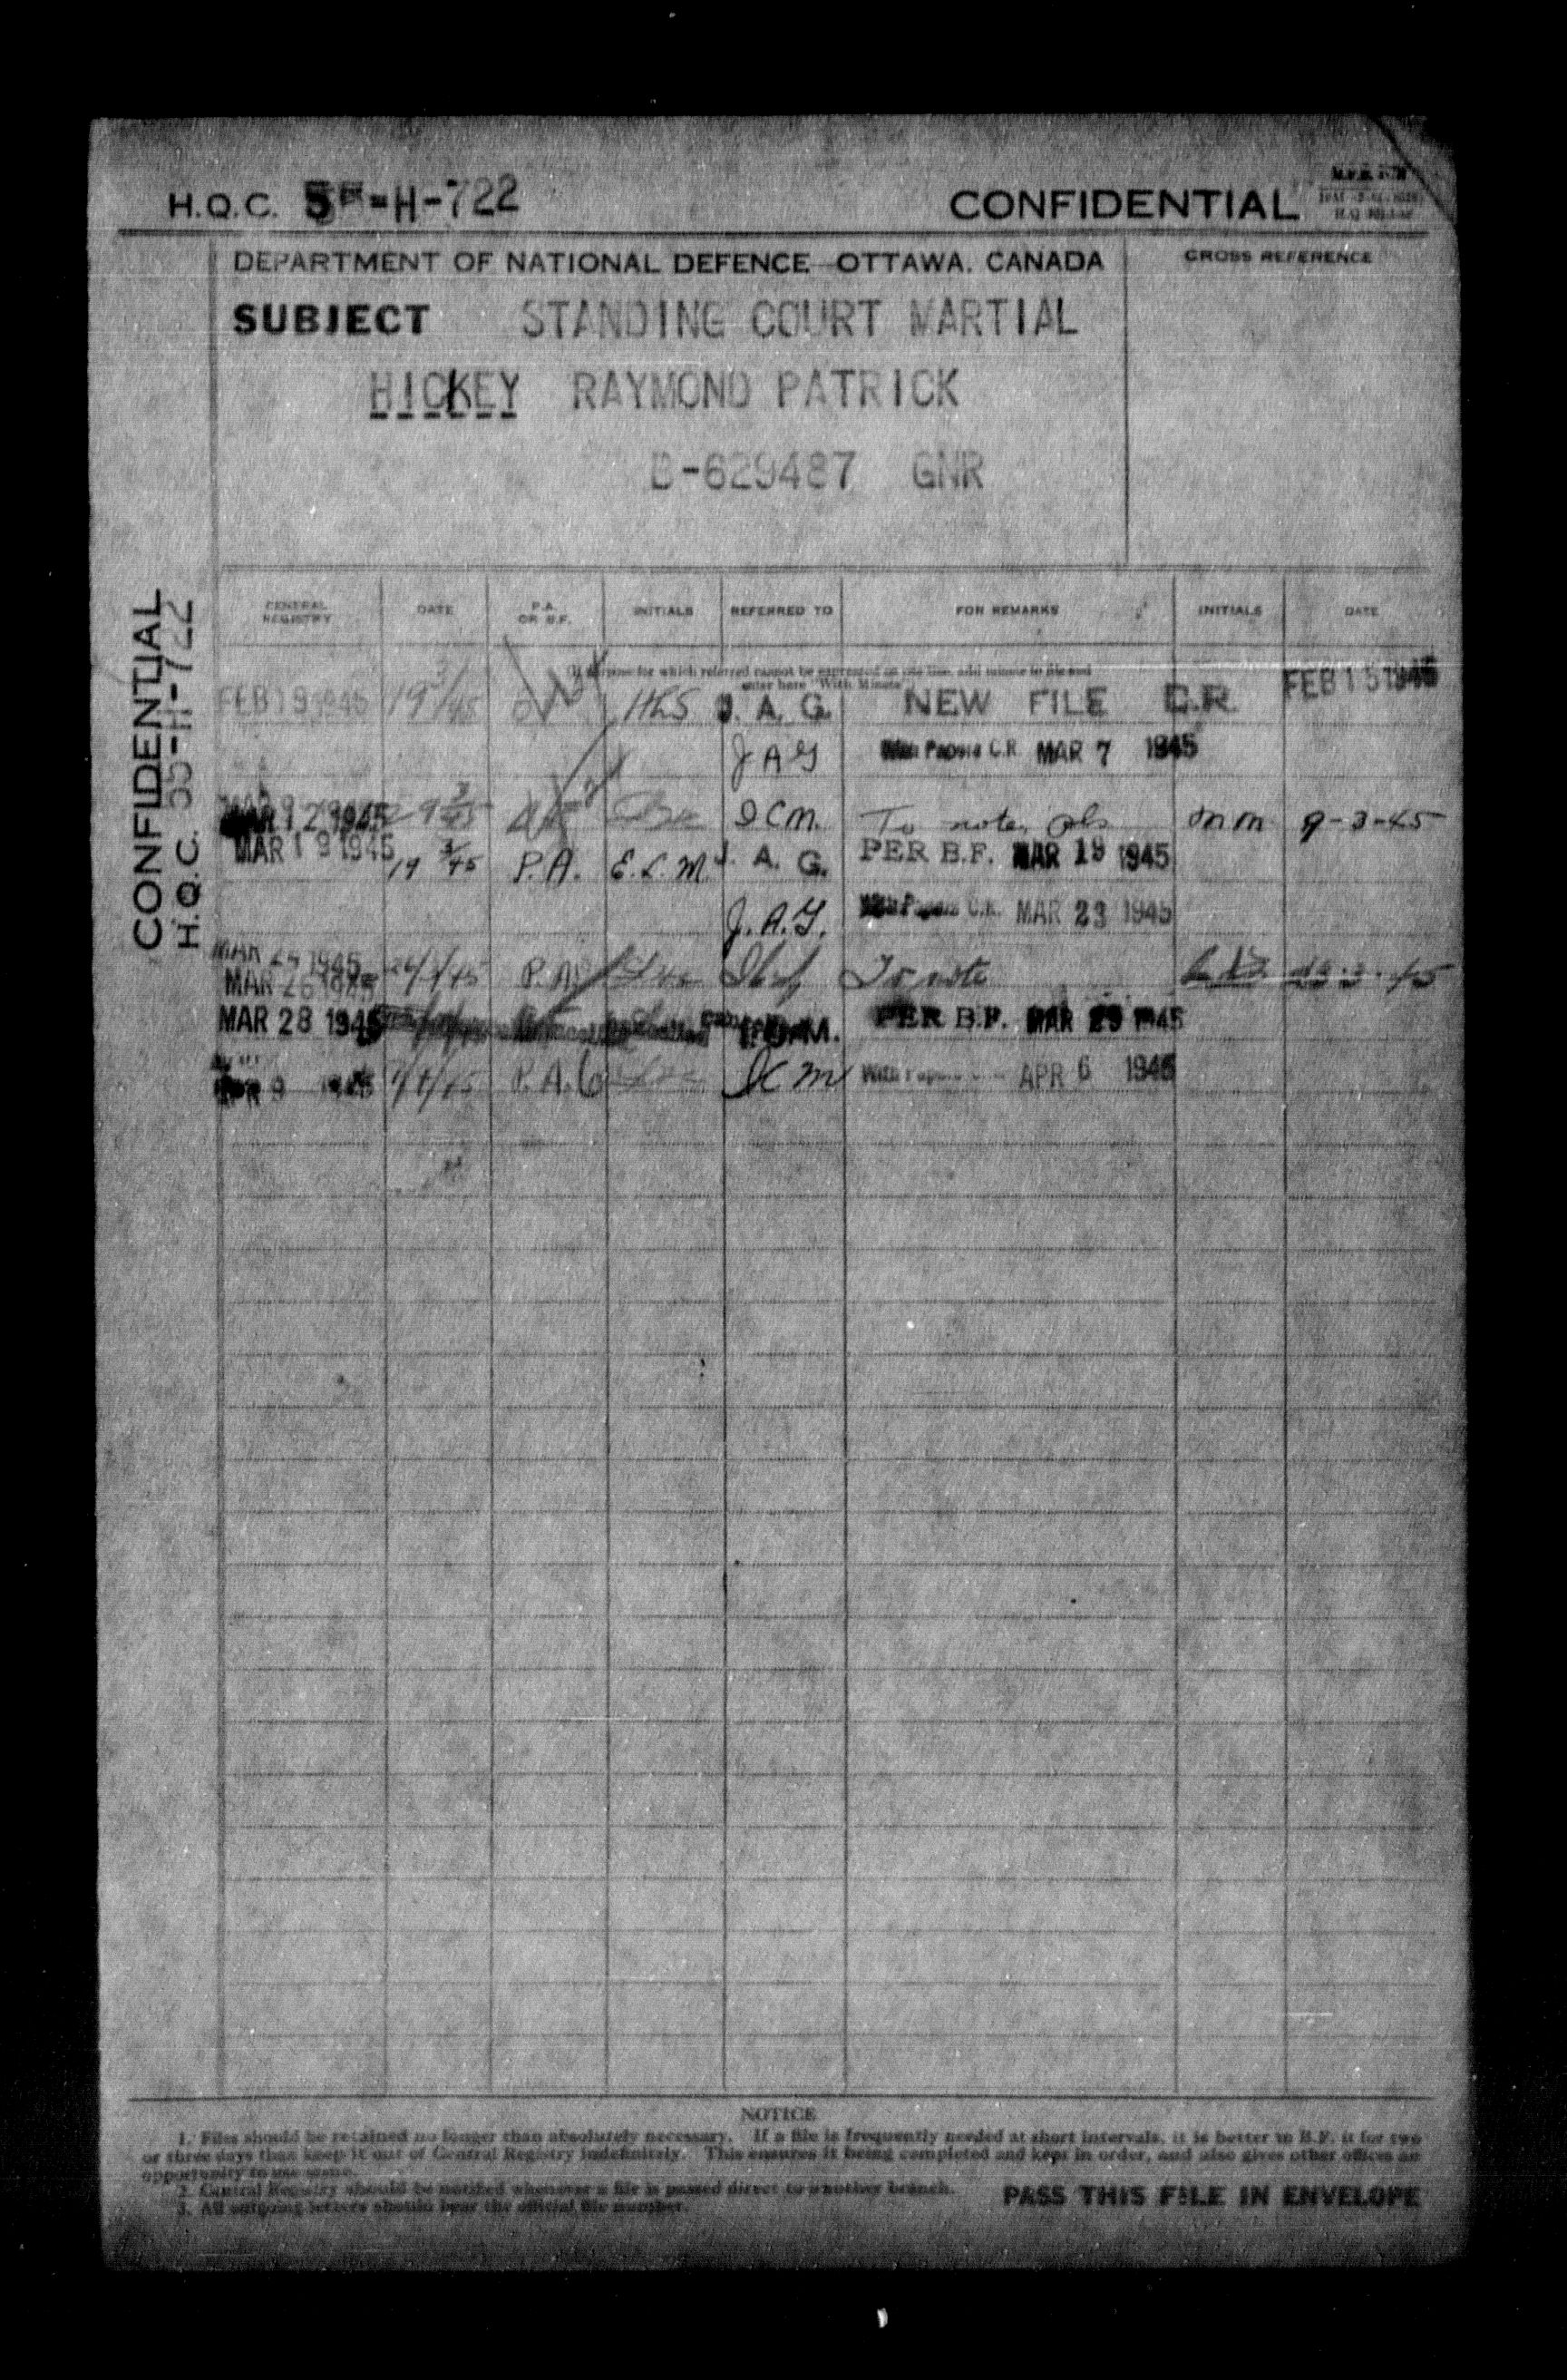 H.Q.C. 55-H-722
CONFIDENTIAL
DEPARTMENT OF NATIONAL DEFENCE—OTTAWA, CANADA
CROSS REFERENCE
SUBJECT STANDING COURT MARTIAL
HICKEY RAYMOND PATRICK
B-629487 GNR
CONFIDENTIAL
H.Q.C. 55-H-722
CENTRAL REGISTRY DATE P.A. OR B.F. INITIALS REFERRED TO FOR REMARKS INITIALS DATE
(If purpose for which referred cannot be expressed on one line, add minute to file and
enter here "With Minute")
FEB 19 1945 19 3/45 HLS J. A. G. NEW FILE C.R. FEB 15 1945
J A G With Papers C.R. MAR 7 1945
MAR 12 1945 9 3/45 I C M. To note, pls M M 9-3-45
MAR 19 1945 19 3/45 P.A. E.L.M. J. A. G. PER B.F. MAR 19 1945
J.A.G. With Papers C.R. MAR 23 1945
MAR 26 1945 P.A. To note
MAR 28 1945 PER B.F. MAR 1945
APR 9 1945 P.A. I C M With Papers APR 6 1945
NOTICE
1. Files should be retained no longer than absolutely necessary. If a file is frequently needed at short intervals, it is better to B.F. it for two
or three days than keep it out of Central Registry indefinitely. This ensures it being completed and kept in order, and also gives other offices an
opportunity to use same.
2. Central Registry should be notified whenever a file is passed direct to another branch.
3. All outgoing letters should bear the official file number.
PASS THIS FILE IN ENVELOPE